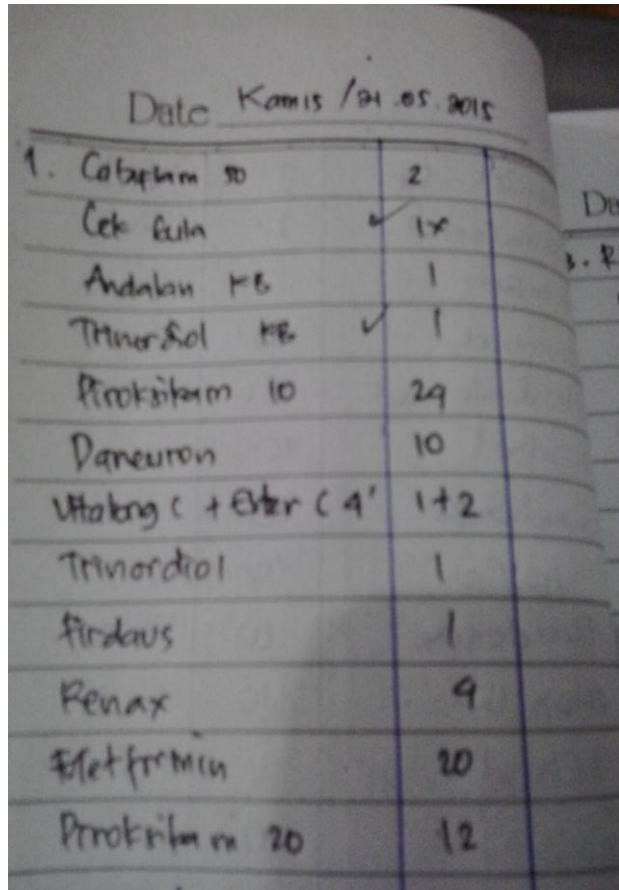 Date Kamis / 21.05.2015
1. Cataflam 50 2
Cek Gula ✓ 1x
Andalan KB 1
Trinordiol KB ✓ 1
Piroksikam 10 24
Daneuron 10
Vitalong C + Ester C 4' 1+2
Trinordiol 1
Firdaus 1
Renax 9
Metformin 20
Piroksikam 20 12